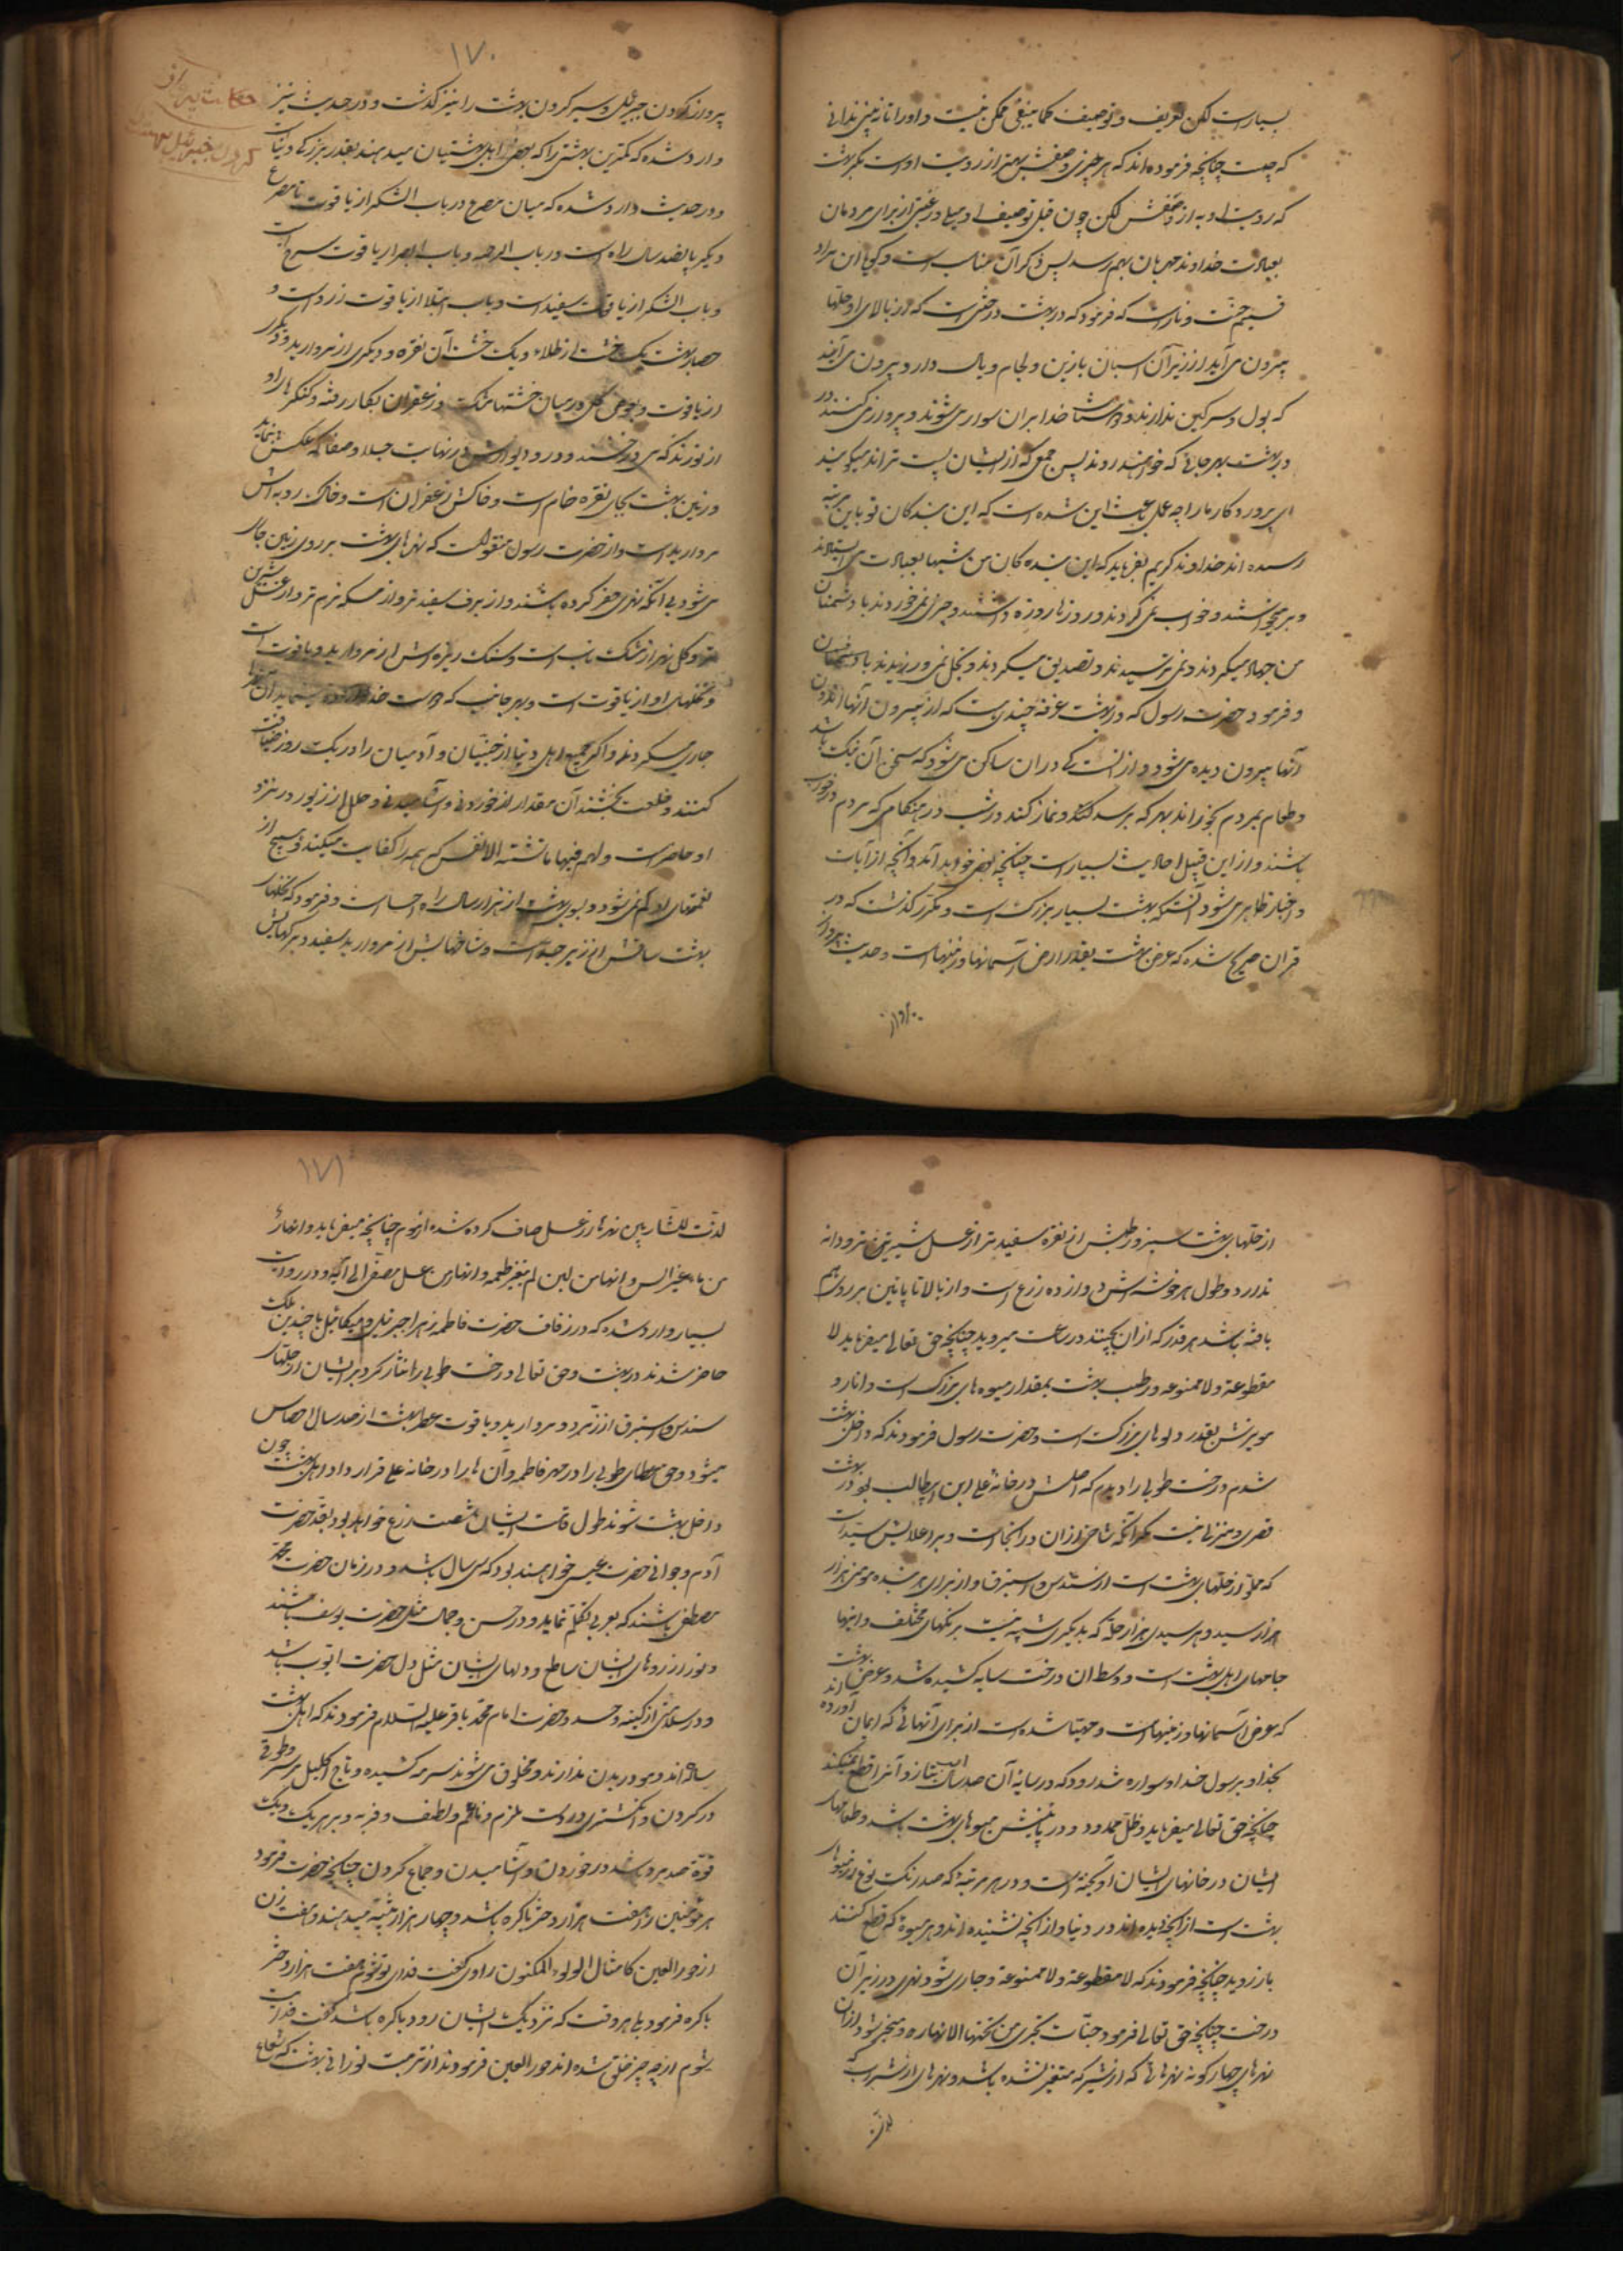 بسیار است لکن تعریف و توصیف کما ینبغی ممکن نیست و او را تا نه بینی ندانی
که چیست چنانچه فرموده‌اند که هر چیزی وصفش بهتر از رویت اوست مگر بهشت
که رویت او به از وصفش لکن چون قبل توصیف او میل و رغبتی از برای مردمان
بعبادت خداوند مهربان بهم رسد پس ذکر آن مناسب است و کویا ان مراد
قسیم جنت و نار است که فرمود که در بهشت درختی است که از بالای او حلها
بیرون می آید از زیر آن اسبان با زین و لجام و بال دار و بیرون می آیند
که بول و سرکین ندارند و دوستان خدا بران سوار می شوند و پرواز می کنند در
در بهشت بهر جائی که خواهند روند پس جمعی که از ایشان پست تر اند میکویند
ای پروردکار ما را چه عمل باعث این شده است که این بندکان تو باین مرتبه
رسیده اند خداوند کریم بفرماید که این بنده کان من شبها بعبادت می ایستادند
و بر میخواستند و خواب نمی کردند و روزها روزه داشتند و چیزی نمی خوردند با دشمنان
من جهاد میکردند و نمی ترسیدند و تصدیق میکردند و بخل نمی ورزیدند
و فرمود حضرت رسول که در بهشت غرفه چند است که از بیرون آنها اندرون
آنها بیرون دیده می شود و از امت کسی در ان ساکن می شود که سخن آن نیک باشد
و طعام بمردم بخوراند بهر که برسد و نماز کند در شب در هنکامی که مردم در خواب
باشند و از این قبیل احادیث بسیار است چنانچه بعضی خواهد آمد و آنچه از آیات
و اخبار ظاهر می شود آنستکه بهشت بسیار بزرک است و مکرر کذشت که در
قران صریح شده که عرض بهشت بقدر ارض آسمانها و زمینهاست و حدیث پرواز
پرواز
۱۷۰
حکایت پرواز
کردن جبرئیل بهشت
پرواز کردن جبرئیل و سیر کردن بهشت را نیز کذشت و در حدیث نیز
وارد شده که کمترین بهشتی را که بعضی اهل بهشتیان میدهند بقدر بزرکی دنیاست
و در حدیث وارد شده که میان مصرع در باب الشکر از یاقوت تا مصرع
دیکر پانصد سال راه است و در باب الرحمه و باب الصبر از یاقوت سرخ است
و باب الشکر از یاقوت سفید است و باب ابتلا از یاقوت زرد است و
حصار بهشت یک خشت از طلاء و یک خشت آن نقره و دیکری از مروارید و دیکر
از یاقوت و بعوض کل در میان خشتها مشک و زعفران بکار رفته و کنکرها او
از نور ند که می درخشند و در و دیوارش در نهایت جلا و صفا که عکس بنماید
و زمین بهشت بجای نقره خام است و خاکش زعفران است و خاک روبه اش
مروارید است و از حضرت رسول منقولست که نهرهای بهشت بر روی زمین جاری
می شود بی آنکه نهری حفر کرده باشند و از برف سفید تر و از مسکه نرم تر و از عسل شیرین
تر و کل نهر از مشک ناب است و سنک ریزه اش از مروارید و یاقوت است
و نخلهای او از یاقوت است و بهر جانب که دوست خدا اراده مینماید ان نهر را
جاری میکردند و اکر جمیع اهل دنیا از جنیان و آدمیان را در یک روز ضیافت
کنند و خلعت بخشند آن مقدار از خوردنی و آشامیدنی و حلل از زیور در نزد
او حاضر است و لهم فیها ما تشتهی الانفس که همه را کفایت میکند و هیچ از
نعمتهای او کم نمی شود و بوی بهشت از هزار سال راه احساس است و فرمود که نخلهای
بهشت ساقش از زبرجد است و شاخهایش از مروارید سفید و برکهایش
از حلهای بهشت سبز و رطبش از نقره سفید تر از عسل شیرین تر و دانه
ندارد و طول هر خوشه اش دوازده زرع است و از بالا تا پائین بر روی هم
بافته باشد هر قدر که ازان بچینند در ساعت میروید چنانچه حق تعالی میفرماید لا
مقطوعة و لا ممنوعه و رطب بهشت بمقدار میوه های بزرک است و انار و
مویزش بقدر دلوهای بزرک است و حضرت رسول فرمودند که داخل بهشت
شدم درخت طوبی را دیدم که اصلش در خانه علی ابن ابیطالب بود در بهشت
قصری و منزلی نیست مکر آنکه شاخی از ان در انجاست و بر اعلایش سبدیست
که مملو از حلهای بهشت است از سندس و استبرق و از برای هر بنده مومنی هزار
هزار سبد و هر سبدی هزار حله که بدیکری شبیه نیست برنکهای مختلف و اینها
جامهای اهل بهشت است و وسط ان درخت سایه کشیده شد و عرض بهشت
که عرض آسمانها و زمینهاست و مهیا شده است از برای آنهائی که ایمان آورده اند
بخدا و برسول خدا و سواره تند رود که در سایه آن صد سال اسب بتازد و آنرا قطع نمیکند
چنانچه حق تعالی میفرماید و ظل ممدود و در پائینش میوهای بهشت باشد و طعامهای
ایشان در خانهای ایشان آویخته است و در هر مرتبه که صد رنک نوع از میوهای
بهشت است از آنچه دیده اند در دنیا و از آنچه نشنیده اند و هر میوه که قطع کنند
باز روید چنانچه فرمودند که لا مقطوعة و لا ممنوعة و جاری شود نهری در زیر آن
درخت چنانچه حق تعالی فرمود جنات تجری من تحتها الانهار و منفجر شود از ان
نهرهای چهارکونه نهرهائی که از شیر که متغیر نشده باشد و نهرهای از شراب که
لذت
۱۷۱
لذت للشاربین نهرها از عسل صاف کرده شده از موم چنانچه میفرماید و انهار
من ماء غیر اسن و انهار من لبن لم یتغیر طعمه و انهار من عسل مصفی الی آیه و در روایت
بسیار وارد شده که در زفاف حضرت فاطمه زهرا جبرئیل و میکائیل با چندین ملک
حاضر شدند در بهشت و حق تعالی درخت طوبی را نثار کرد بر ایشان از حلهای
سندس و استبرق از زمرد و مروارید و یاقوت عطر بهشت از صد سال احساس
میشود و حق عطای طوبی را در مهر فاطمه و آن ها را در خانه علی قرار داد و اهل بهشت چون
داخل بهشت شوند طول قامت ایشان شصت زرع خواهد بود بقد حضرت
آدم و جوانی حضرت عیسی خواهند بود که سی سال باشد و در زمان حضرت محمد
مصطفی باشند که بعربی تکلم نماید و در حسن و جمال مثل حضرت یوسف باشند
و نور از روهای ایشان ساطع و دلهای ایشان مثل دل حضرت ایوب باشد
و در سلامتی از کینه و حسد و حضرت امام محمد باقر علیه السلام فرمودند که اهل بهشت
ساده اند و مو در بدن ندارند و مخلوق می شوند سرمه کشیده و تاج اکلیل بر سر و طوق
در کردن و انکشتری در دست و نرم و ناعم و لطیف و فربه و بر هر یک
قوة صد مرد باشد در خوردن و آشامیدن و جماع کردن چنانچه حضرت فرمود
هر مومنین را هفت هزار دختر باکره باشد و چهار هزار ثیبه میدهند و هفت زن
از حور العین کامثال اللولوء المکنون راوی کفت فدای تو شوم هفت هزار دختر
باکره فرمود بلی هر وقت که نزدیک ایشان رود باکره باشد کفت فدایت
شوم از چه چیز خلق شده اند حور العین فرمودند از تربت نورانی بهشت که شعاع